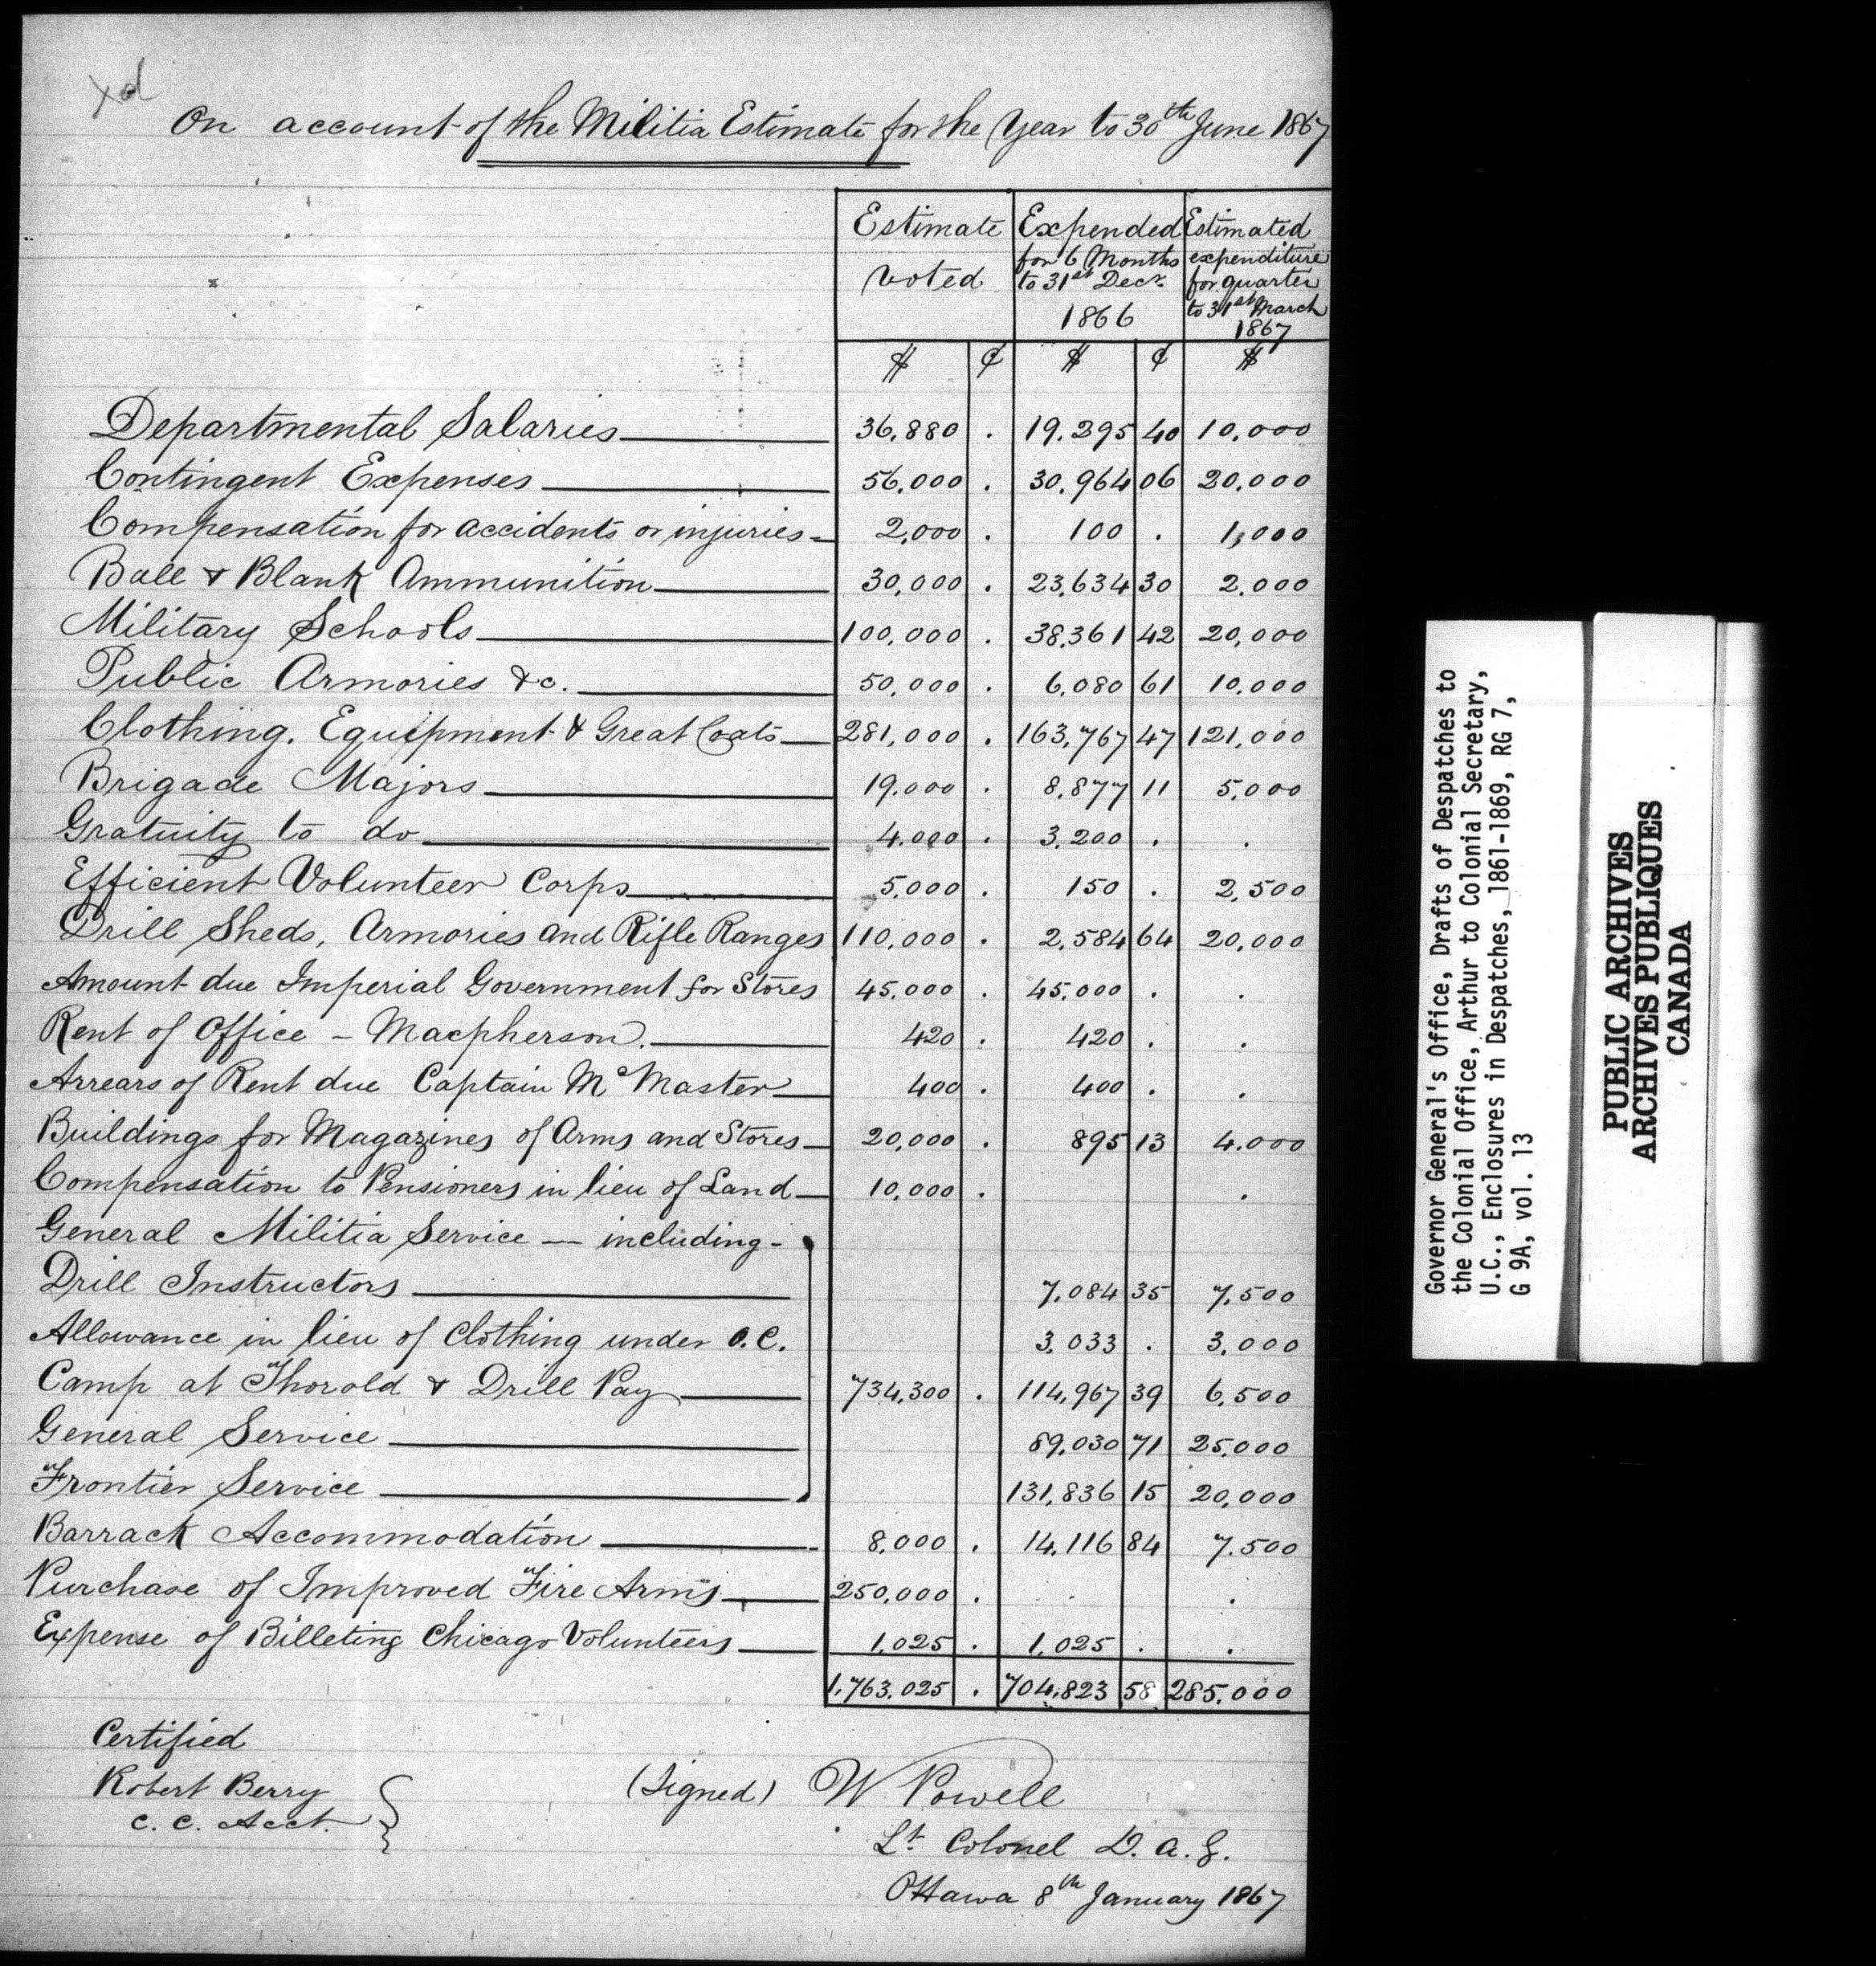 xd
On account of the Militia Estimate for the Year to 30th June 1867
Estimate voted | Expended for 6 Months to 31st Decr. 1866 | Estimated expenditure for quarter to 31st March 1867
$ ¢ $ ¢ $
Departmental Salaries 36,880 . 19.295 40 10,000
Contingent Expenses 56,000 . 30,964 06 20,000
Compensation for accidents or injuries 2,000 . 100 . 1,000
Ball & Blank Ammunition 30,000 . 23,634 30 2.000
Military Schools 100,000 . 38,361 42 20,000
Public Armories &c. 50,000 . 6,080 61 10,000
Clothing, Equipment & Great Coats 281,000 . 163,767 47 121,000
Brigade Majors 19.000 . 8,877 11 5,000
Gratuity to do 4.000 . 3,200 . .
Efficient Volunteer Corps 5,000 . 150 . 2,500
Drill Sheds, Armories and Rifle Ranges 110,000 . 2,584 64 20,000
Amount due Imperial Government for Stores 45,000 . 45,000 . .
Rent of Office - Macpherson. 420 . 420 . .
Arrears of Rent due Captain McMaster 400 . 400 . .
Buildings for Magazines of Arms and Stores 20,000 . 895 13 4.000
Compensation to Pensioners in lieu of Land 10,000 . .
General Militia Service — including -
Drill Instructors 7,084 35 7,500
Allowance in lieu of Clothing under O.C. 3,033 . 3,000
Camp at Thorold & Drill Pay 734,300 . 114,967 39 6,500
General Service 89,030 71 25,000
Frontier Service 131,836 15 20,000
Barrack Accommodation 8,000 . 14,116 84 7.500
Purchase of Improved Fire Arms 250,000 . . .
Expense of Billeting Chicago Volunteers 1,025 . 1,025 . .
1,763.025 . 704,823 58 285.000
Certified
Robert Berry
C. C. Acct.
(Signed) W Powell
Lt. Colonel D. A. G.
Ottawa 8th January 1867
Governor General's Office, Drafts of Despatches to
the Colonial Office, Arthur to Colonial Secretary,
U.C., Enclosures in Despatches, 1861-1869, RG 7,
G 9A, vol. 13
PUBLIC ARCHIVES
ARCHIVES PUBLIQUES
CANADA